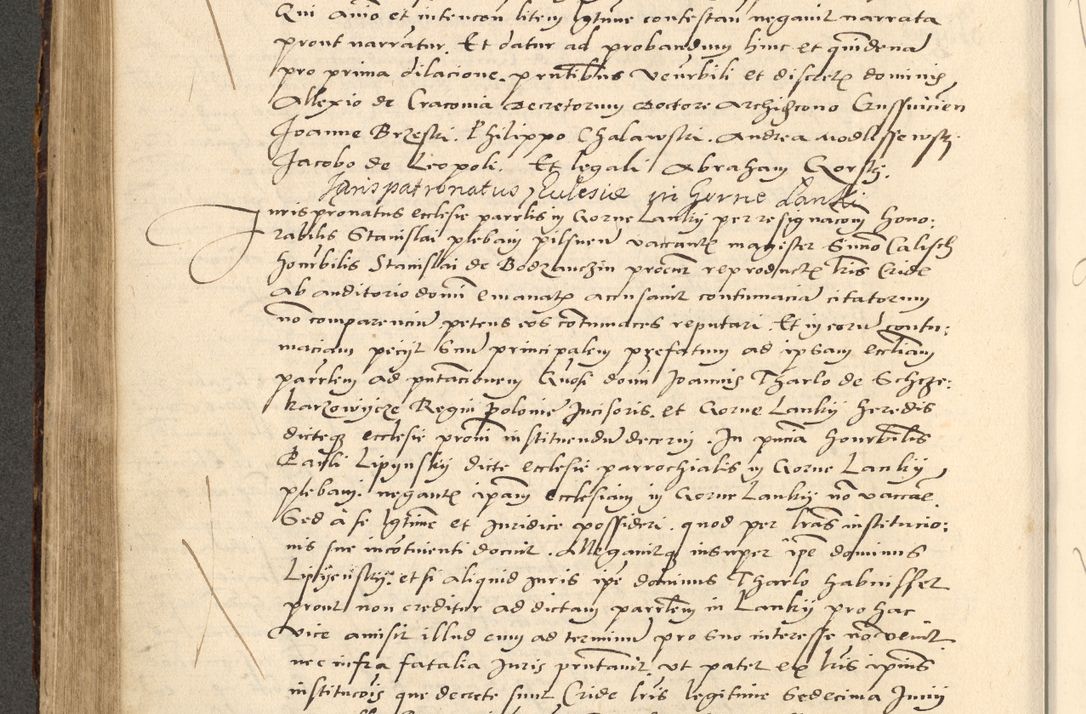 Qui animo et intencion litem lgtime contestan negavit narrata
prout narrantur. Et datur ad probandum hinc et quindena
pro prima dilacione. pntibus Venrbili et discretis dominis
Allexio de Cracovia Decretorum Doctore Archidiacono
Joanne Brzeski. Philippo Chalawski. Andrea Modlissewsky.
Jacobo de Leopoli. Et legali Abraham Gorsky.
Juris patronatus Ecclesie in Gorne Lanki
Juris pronatus ecclesie parrlis in Gorne Lankij per resignacom hono:
rabilis Stanislai plebani pilsnen vaccantis magister Simo Calisch
honrbilis Stanislai de Bodzanczin procur reproductis lris Cride
ab auditorio domi emanatis accusavit contumacia citatorum
no comparenciu petens eos cotumaces reputari. Et in eoru contu:
maciam peciit Suu principalem prefatum ad ipsam eccliam
parrlem ad pntacionem Gnosi domi Joannis Tharlo de Schcze:
karzowycze Regni Polonie Incisoris. et Gorne Lankij heredis
dicteque ecclesie proni instituendu decerni. In pncia honrbilis
Pauli Lipynskij dicte ecclesie parrochialis in Gorne Lankij
plebani. negantis ipam ecclesiam in Gorne Lankij no vaccare
Sed a se lgtime et Juridice possideri. quod per lras institucio:
nis sue incotinenti docuit. Allegavitque insuper ipe dominus
Lipijenskij. et si aliquid juris ipe dominus Tharlo habuisset
prout non creditur ad dictam parrlem in Lankij pro hac
vice amisit illud cum ad terminum pro suo interesse no venit
nec infra fatalia Juris pntavit ut patet ex lris ipius
institucois que decrete sunt Cride lris legitime Sedecima Junij